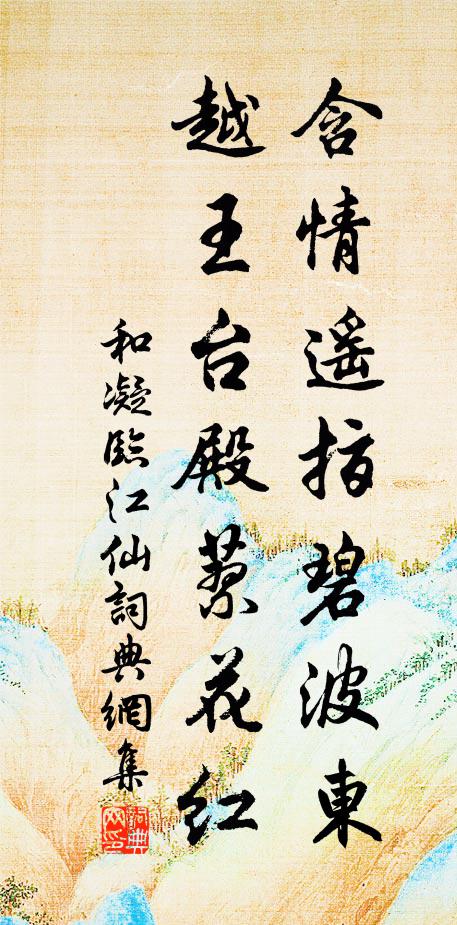 含情遥指碧波東
越王台殿蓼花红
和凝臨江仙詞典網集
詞典网印